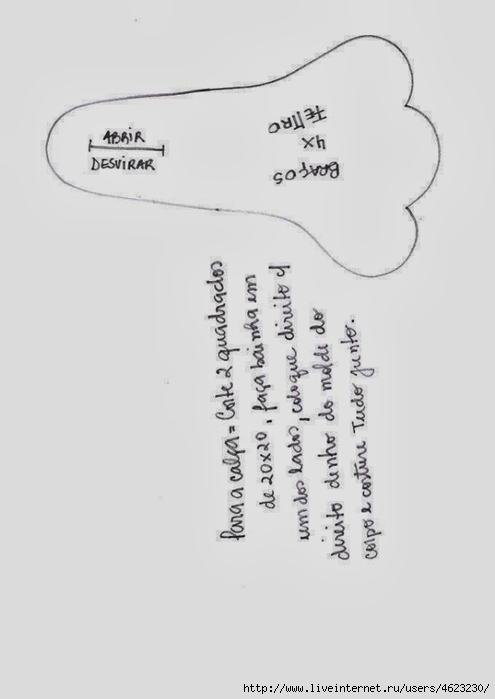 ABRIR
DESVIRAR
BRAÇOS
4x
FELTRO
Para a calça = Corte 2 quadrados
de 20x20, faça bainha em
um dos lados, coloque direito c/
direito dentro do molde do
corpo e costure tudo junto.
http://www.liveinternet.ru/users/4623230/